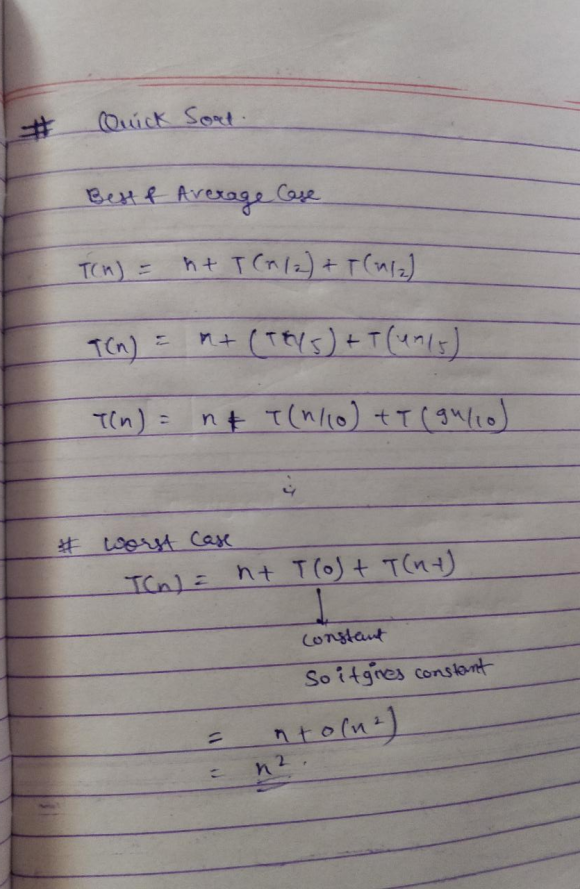 # Quick Sort.
Best & Average Case
T(n) = n + T(n/2) + T(n/2)
T(n) = n + (Tn/5) + T(4n/5)
T(n) = n + T(n/10) + T(9n/10)
# Worst Case
T(n) = n + T(0) + T(n-1)
↓
constant
So it gives constant
= n + O(n²)
= n².